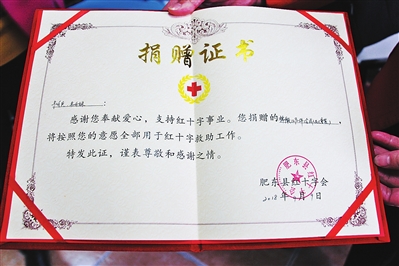 捐赠证书
感谢您奉献爱心，支持红十字事业。您捐赠的
将按照您的意愿全部用于红十字救助工作。
特发此证，谨表尊敬和感谢之情。
肥东县红十字会
2018年 月 日